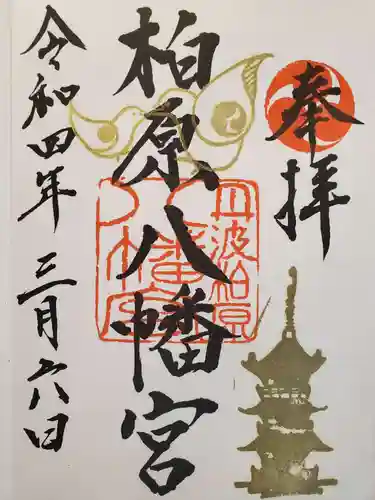 奉拝
丹波柏原
柏原八幡宮
令和四年三月六日